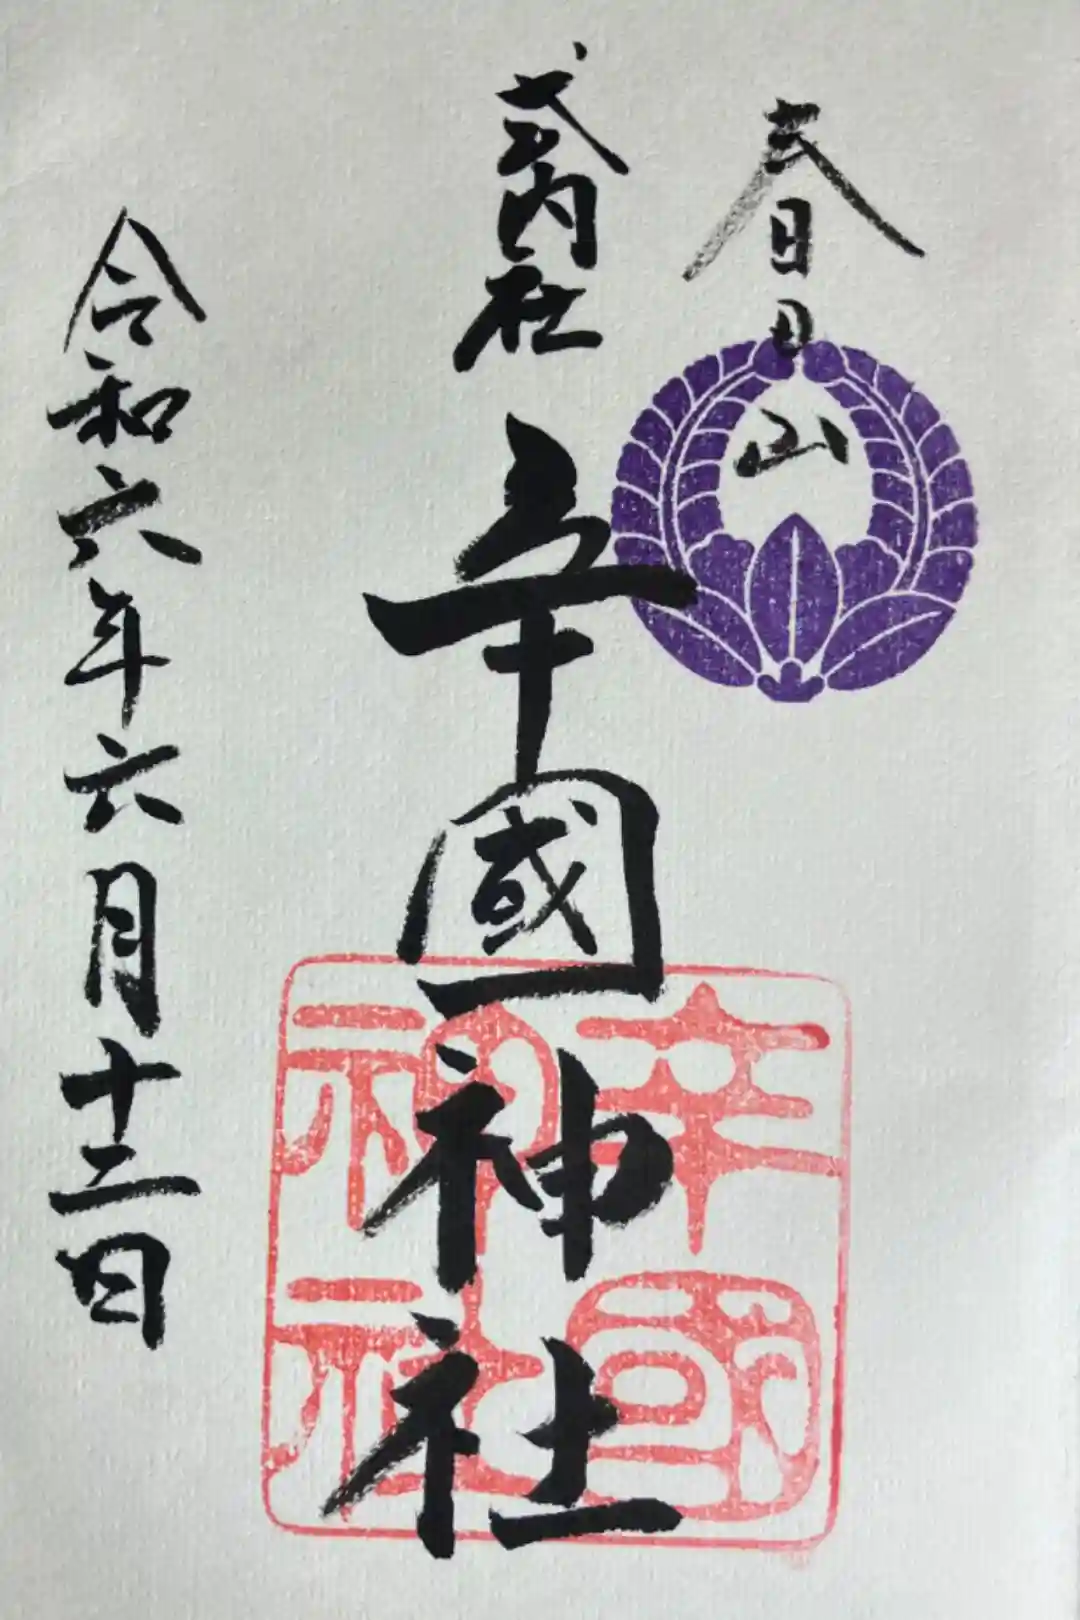 春日山
式内社
辛國神社
令和六年六月十二日
辛國神社